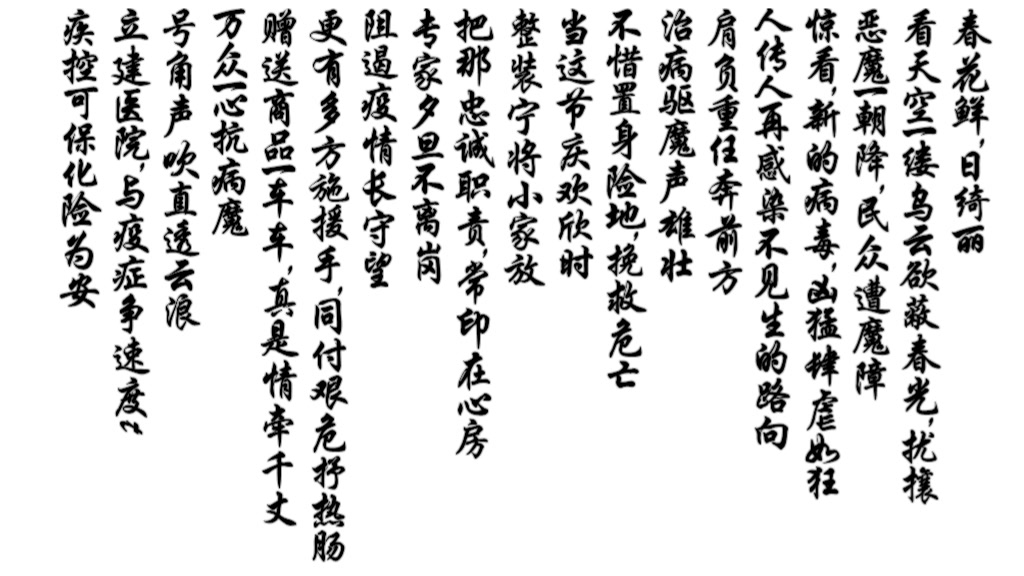 春花鲜，日绮丽
看天空一缕乌云欲蔽春光，扰攘
恶魔一朝降，民众遭魔障
惊看，新的病毒，凶猛肆虐如狂
人传人再感染不见生的路向
肩负重任奔前方
治病驱魔声雄壮
不惜置身险地，挽救危亡
当这节庆欢欣时
整装宁将小家放
把那忠诚职责，常印在心房
专家夕旦不离岗
阻遏疫情长守望
更有多方施援手，同付艰危抒热肠
赠送商品一车车，真是情牵千丈
万众一心抗病魔
号角声 吹直透云浪
立建医院，与疫症争速度
疾控可保化险为安